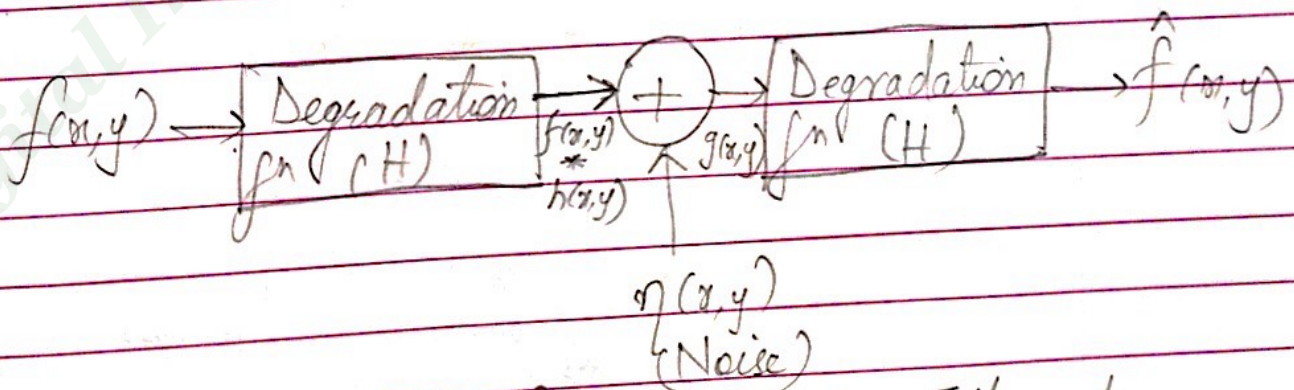 f(x,y) → Degradation fn (H) → f(x,y) * h(x,y) + → g(x,y) Degradation fn (H) → f̂(x,y)
η(x,y)
(Noise)